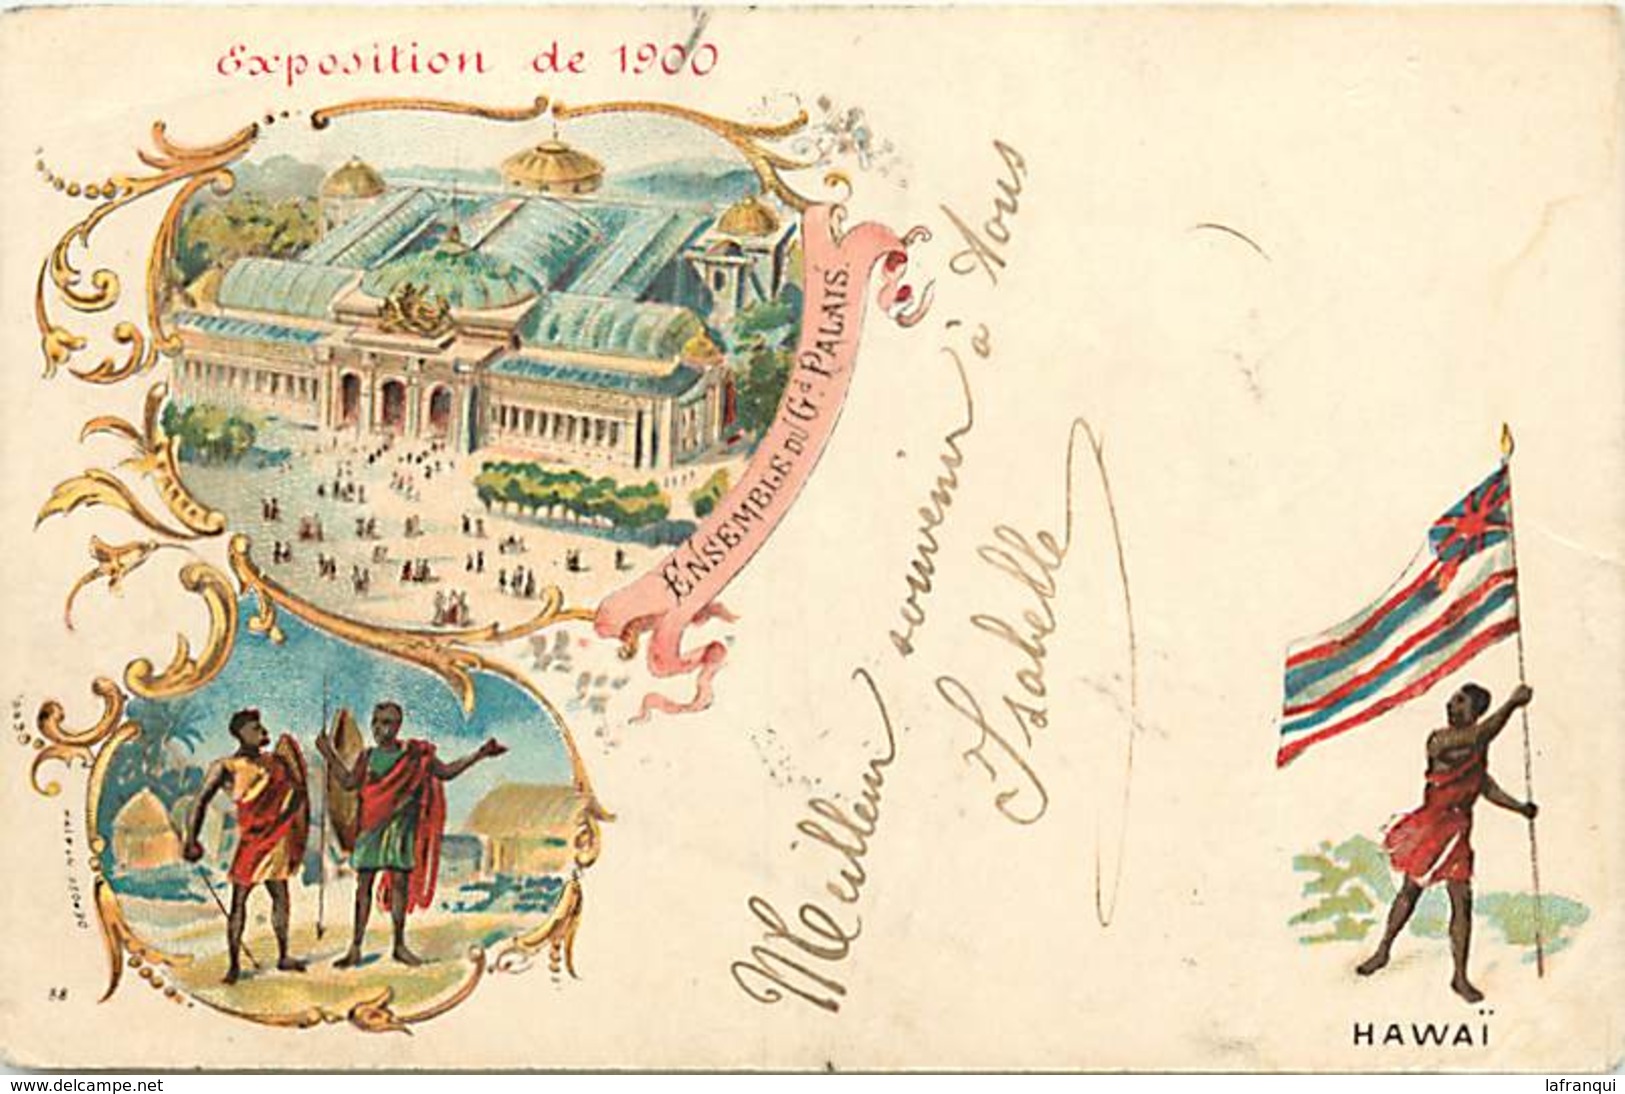 Exposition de 1900
ENSEMBLE DU Gd PALAIS.
Meilleur souvenir à tous
Isabelle
HAWAÏ
88
www.delcampe.net
lafranqui